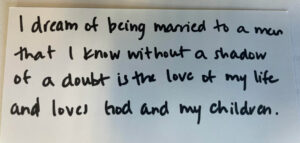 I dream of being married to a man
that I know without a shadow
of a doubt is the love of my life
and loves God and my children.